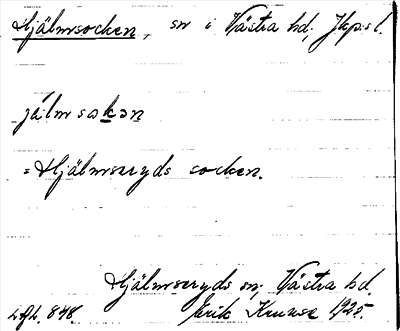 Hjälmsocken, sn i Västra hd, Jkp.s l.
jálmsokən
= Hjälmseryds socken.
Hjälmseryds sn, Västra hd.
848. Erik Kruuse 1925.